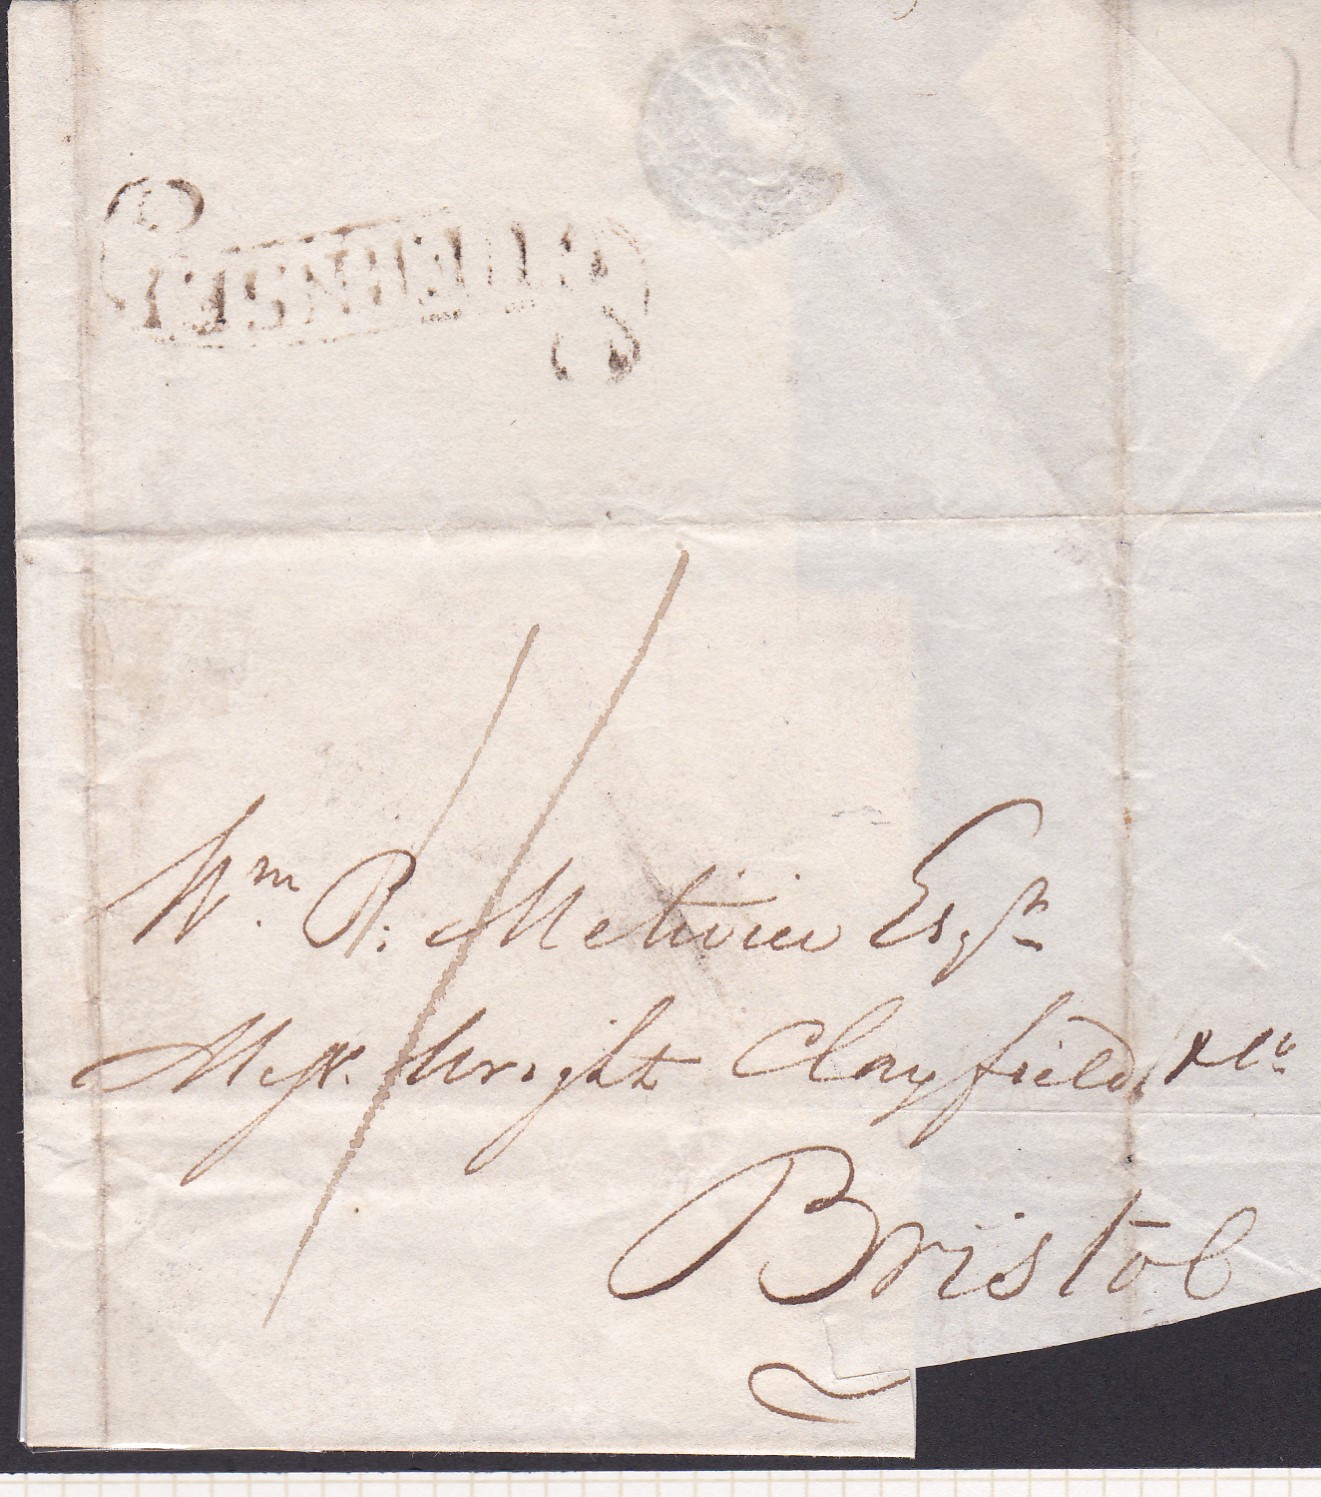 GUERNSEY
Wm. P. Metivier Esqr
Messrs. Wright Clayfield & Co
Bristol